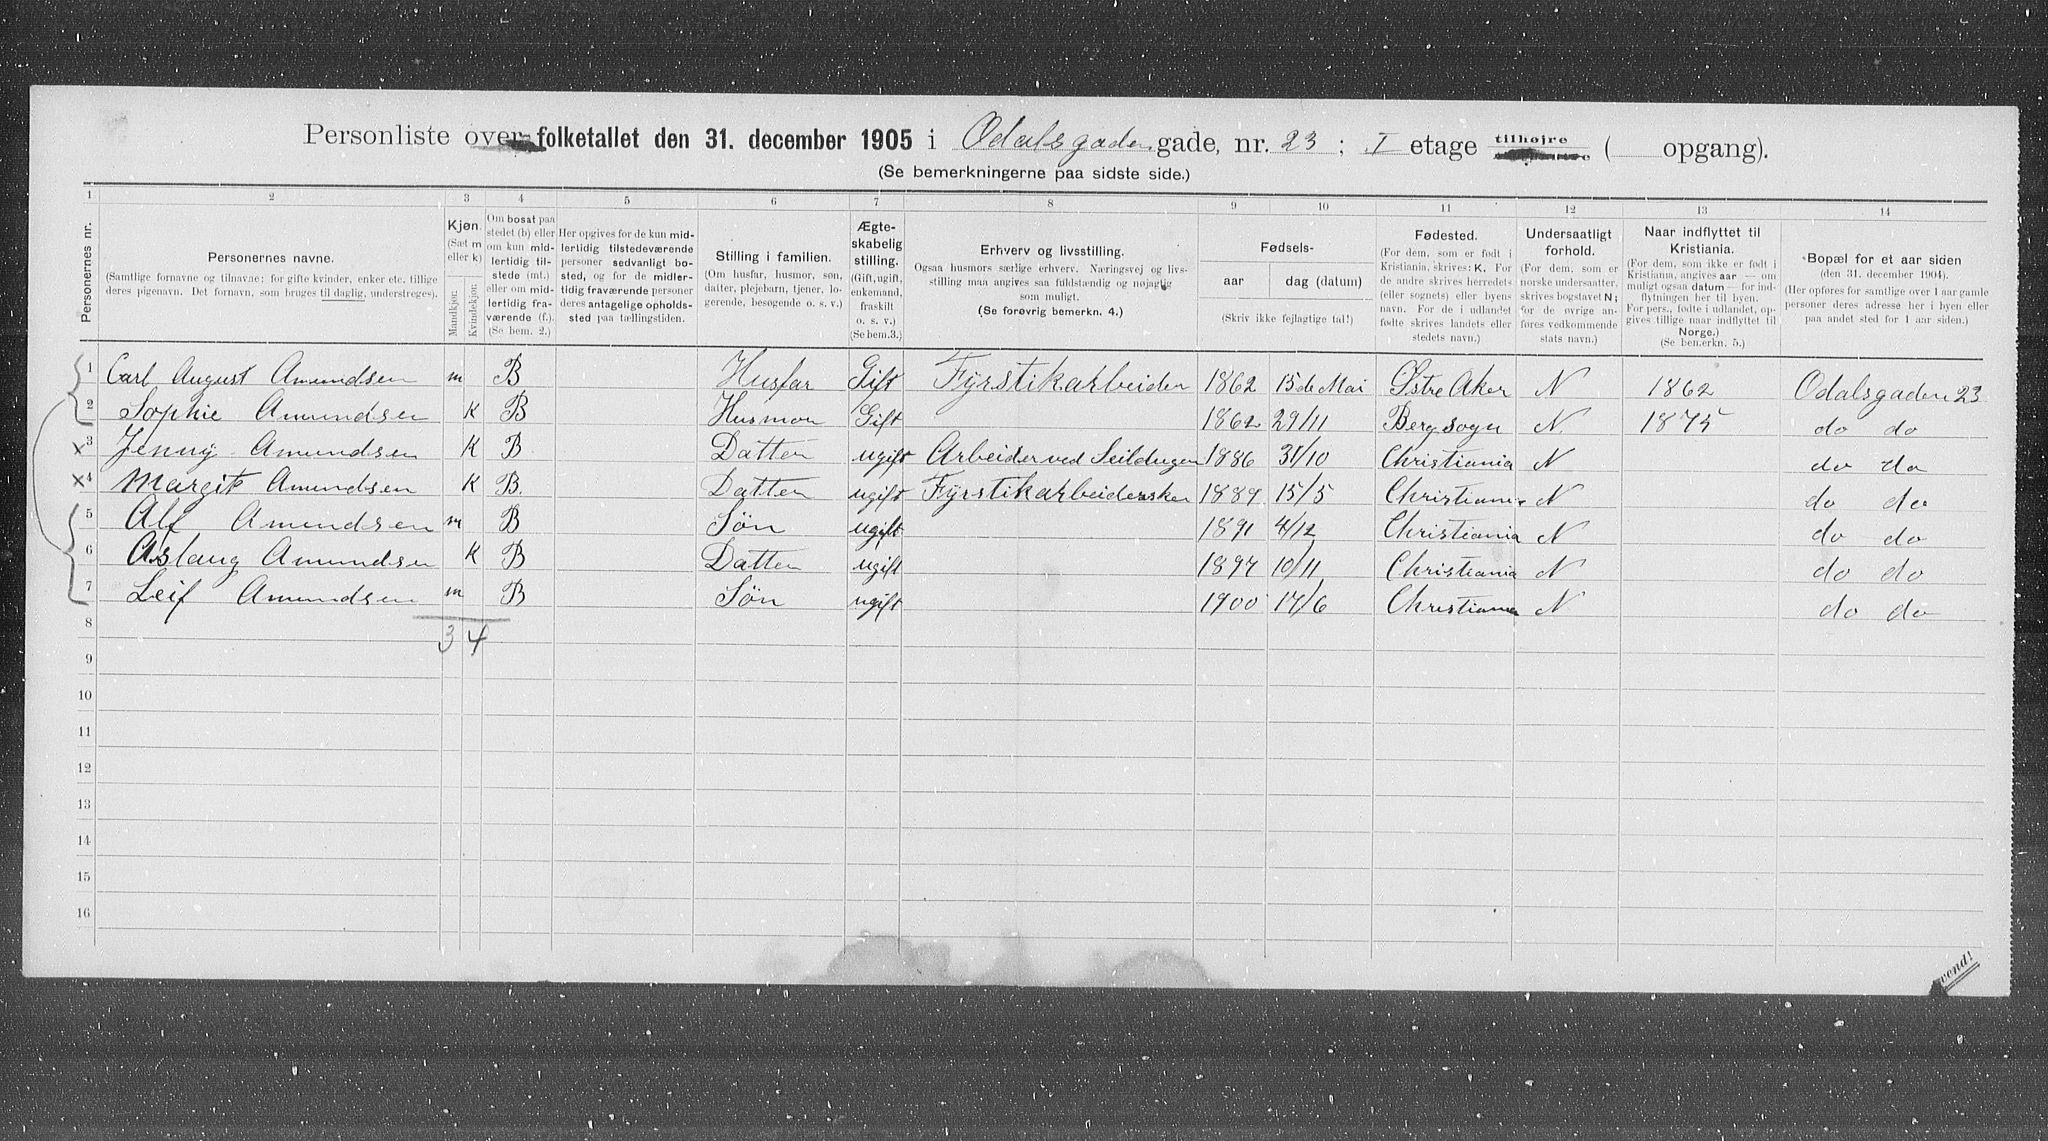 Personliste over folketallet den 31. december 1905 i Odalsgaden gade, nr. 23 ; I etage tilhøjre ( opgang).
(Se bemerkningerne paa sidste side.)
1 2 3 4 5 6 7 8 9 10 11 12 13 14
Personernes nr.
Personernes navne.
(Samtlige fornavne og tilnavne; for gifte kvinder, enker etc. tillige
deres pigenavn. Det fornavn, som bruges til daglig, understreges).
Kjøn.
(Sæt m
eller k)
Mandkjøn.
Kvindekjøn.
Om bosat paa
stedet (b) eller
om kun mid-
lertidig til-
stede (mt.)
eller om mid-
lertidig fra-
værende (f.).
(Se bem. 2.)
Her opgives for de kun mid-
lertidig tilstedeværende
personer sedvanligt bo-
sted, og for de midler-
tidig fraværende personer
deres antagelige opholds-
sted paa tællingstiden.
Stilling i familien.
(Om husfar, husmor, søn,
datter, plejebarn, tjener, lo-
gerende, besøgende o. s. v.)
Ægte-
skabelig
stilling.
(Gift, ugift,
enkemand,
fraskilt
o. s. v.)
(Se bem.3.)
Erhverv og livsstilling.
Ogsaa husmors særlige erhverv. Næringsvej og livs-
stilling maa angives saa fuldstændig og nøjagtig
som muligt.
(Se forøvrig bemerkn. 4.)
Fødsels-
aar dag (datum)
(Skriv ikke fejlagtige tal!)
Fødested.
(For dem, som er født i
Kristiania, skrives: K. For
de andre skrives herredets
(eller sognets) eller byens
navn. For de i udlandet
fødte skrives landets eller
stedets navn.)
Undersaatligt
forhold.
(For dem, som er
norske undersaatter,
skrives bogstavet N;
for de øvrige an-
føres vedkommende
stats navn.)
Naar indflyttet til
Kristiania.
(For dem, som ikke er født i
Kristiania, angives aar — om
muligt ogsaa datum — for ind-
flytningen her til byen.
For pers., fødte i udlandet, op-
gives tillige naar indflyttet til
Norge.)
(Se bemerkn. 5.)
Bopæl for et aar siden
(den 31. december 1904).
(Her opføres for samtlige over 1 aar gamle
personer deres adresse her i byen eller
paa andet sted for 1 aar siden.)
1 Carl August Amundsen m B Husfar Gift Fyrstikarbeider 1862 15de Mai Østre Aker N 1862 Odalsgaden 23
2 Sophie Amundsen K B Husmor Gift 1862 29/11 Bergsogn N. 1875 do do
x 3 Jenny Amundsen K B Datter ugift Arbeider ved Seildugen 1886 31/10 Christiania N do do
x 4 Margit Amundsen K B. Datter ugift Fyrstikarbeiderske 1889 15/5 Christiania N do do
5 Alf Amundsen m B Søn ugift 1891 4/12 Christiania N do do
6 Aslaug Amundsen K B Datter ugift 1897 10/11 Christiania N do do
7 Leif Amundsen m B Søn ugift 1900 17/6 Christiania N do do
8 3 4
9
10
11
12
13
14
15
16
vend!